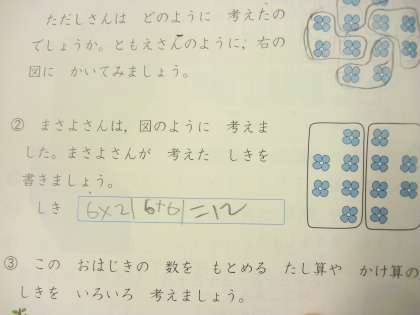 ただしさんは どのように 考えたの
でしょうか。ともえさんのように，右の
図に かいてみましょう。
② まさよさんは，図のように 考えま
した。まさよさんが 考えた しきを
書きましょう。
しき 6×2 6+6 =12
③ この おはじきの 数を もとめる たし算や かけ算の
しきを いろいろ 考えましょう。